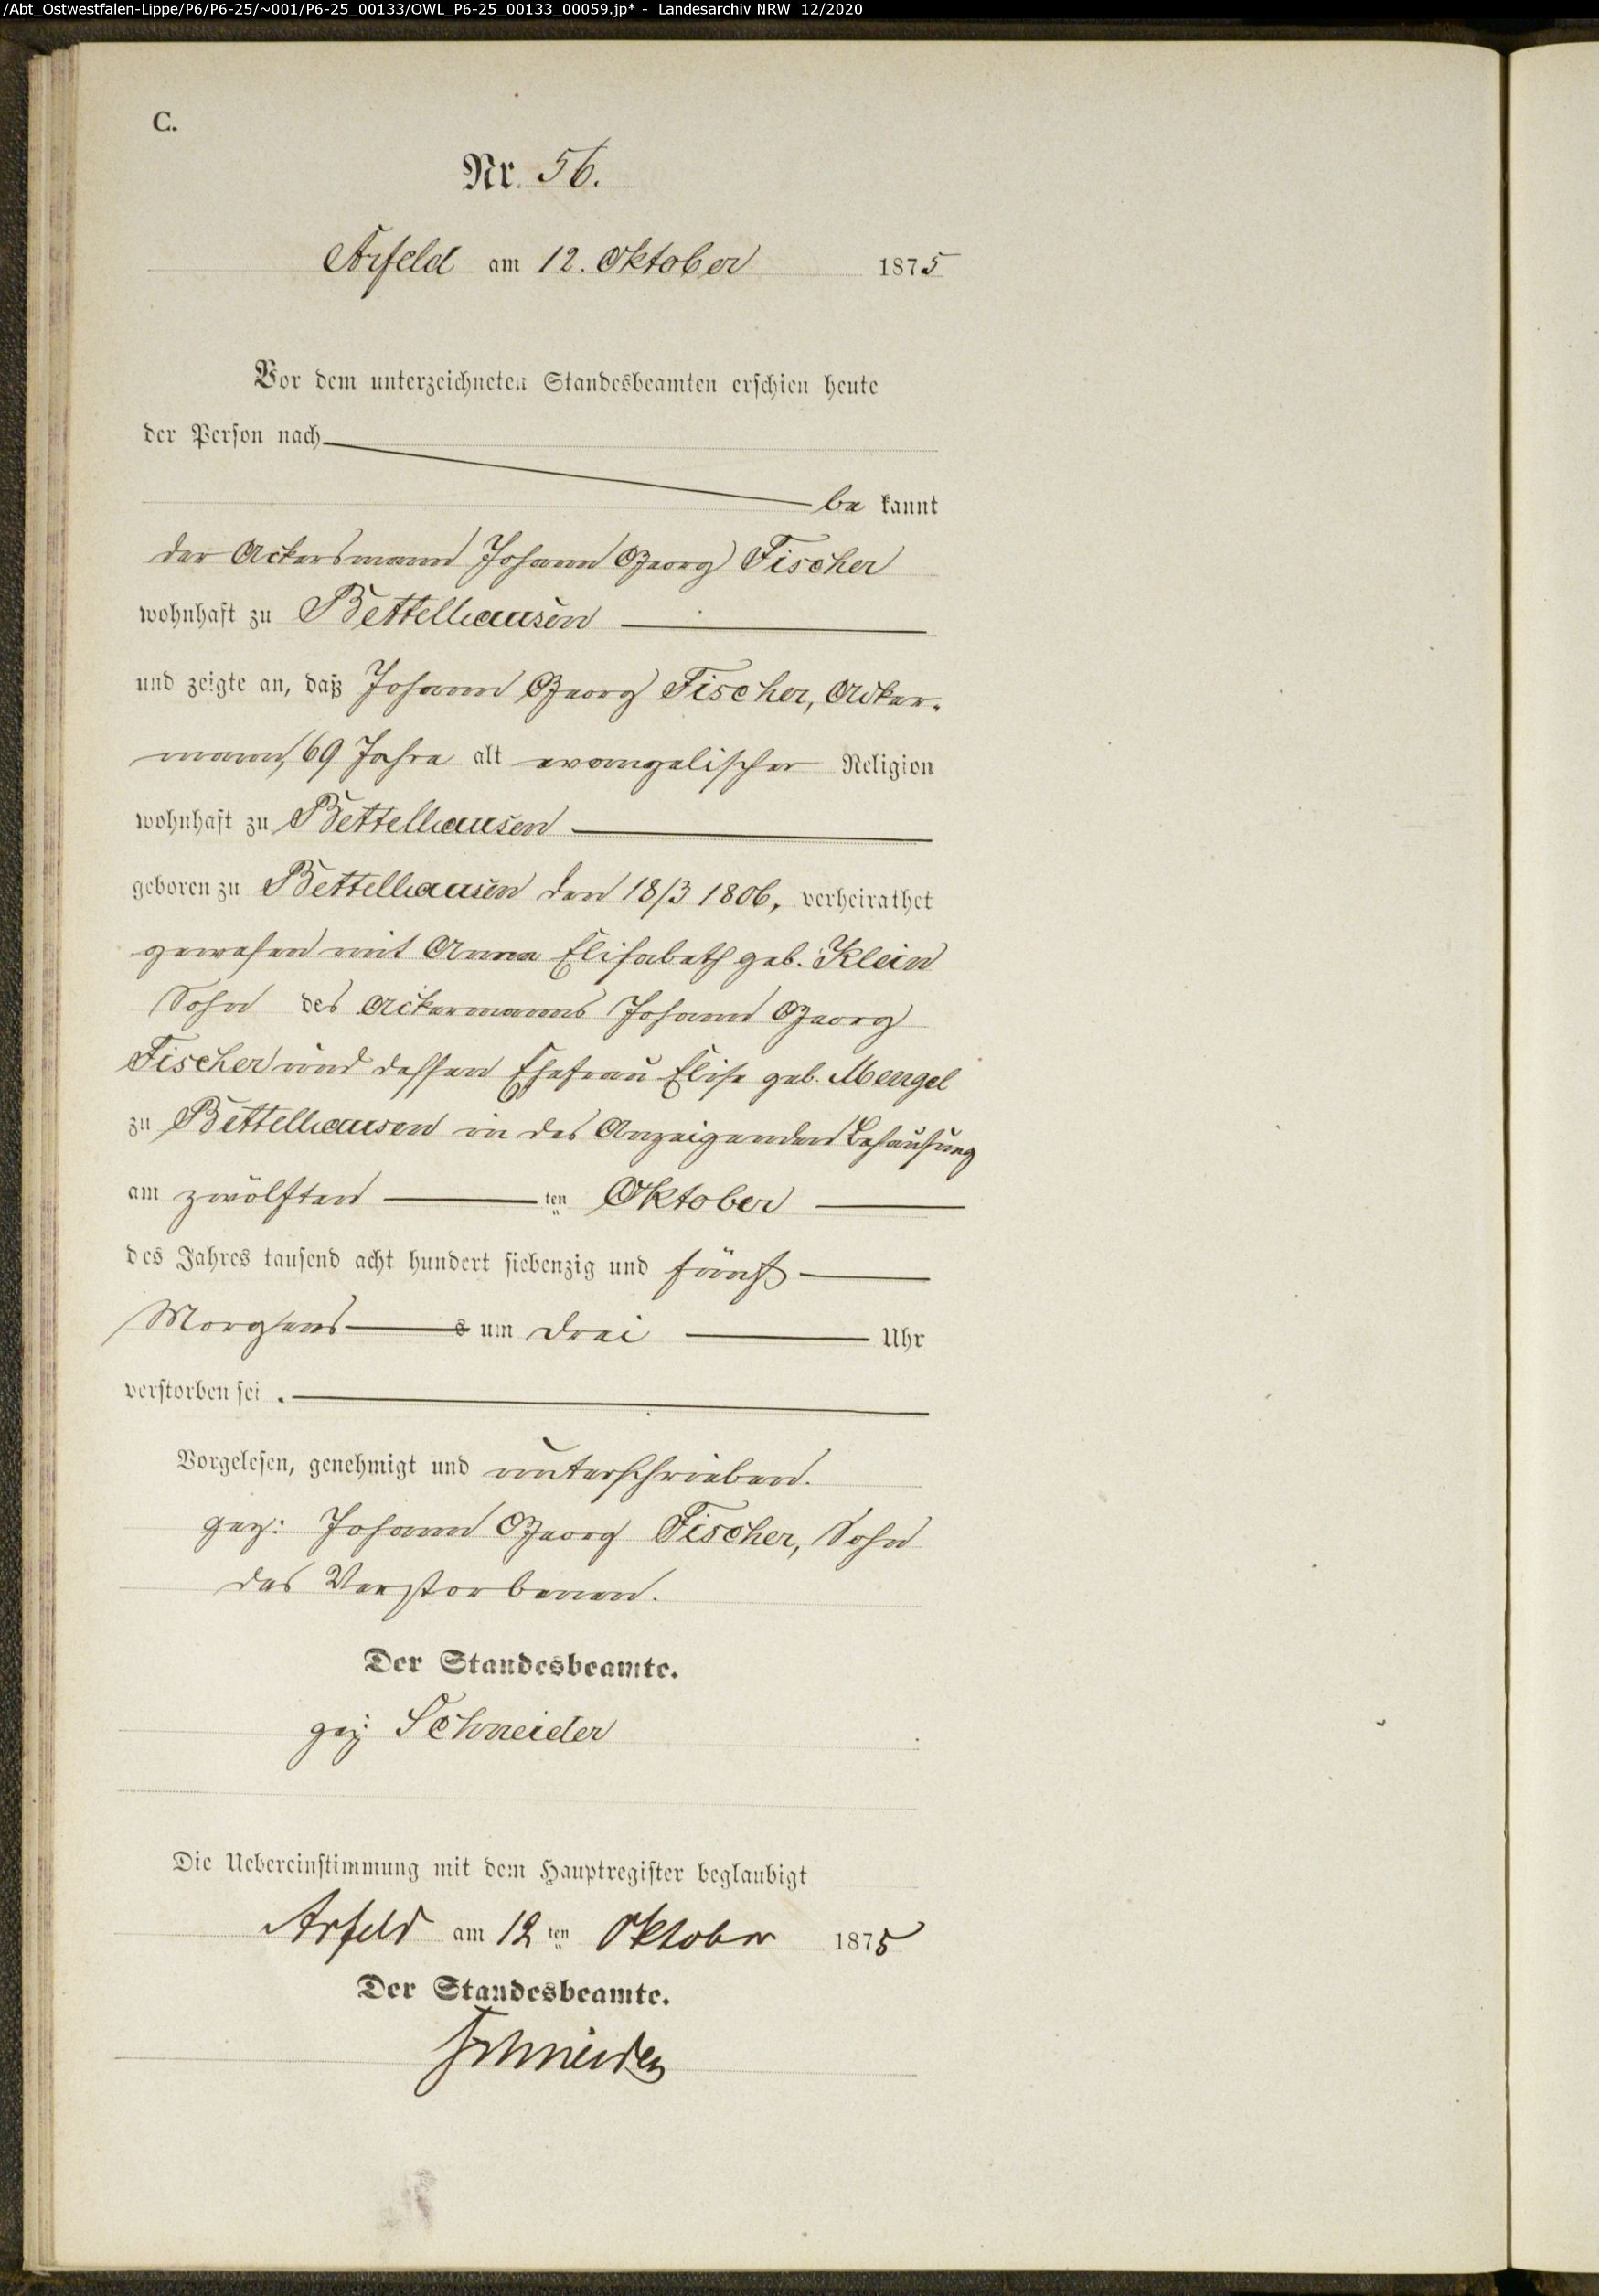 /Abt_Ostwestfalen-Lippe/P6/P6-25/~001/P6-25_00133/OWL_P6-25_00133_00059.jp* - Landesarchiv NRW 12/2020
C.
Nr. 56.
Arfeld am 12. Oktober 1875
Vor dem unterzeichneten Standesbeamten erschien heute
der Person nach
be kannt
der Ackersmann Johann Georg Fischer
wohnhaft zu Bettelhausen
und zeigte an, daß Johann Georg Fischer, Acker-
mann, 69 Jahre alt evangelischer Religion
wohnhaft zu Bettelhausen
geboren zu Bettelhausen den 18/3 1806, verheirathet
gewesen mit Anna Elisabeth geb. Klein
Sohn des Ackermanns Johann Georg
Fischer und dessen Ehefrau Elise geb. Mengel
zu Bettelhausen in des Anzeigenden Behausung
am zwölften ten Oktober
des Jahres tausend acht hundert siebenzig und fünf
Morgens s um drei Uhr
verstorben sei.
Vorgelesen, genehmigt und unterschrieben.
gez: Johann Georg Fischer, Sohn
des Verstorbenen.
Der Standesbeamte.
gez Schneider
Die Uebereinstimmung mit dem Hauptregister beglaubigt
Arfeld am 12 ten Oktober 1875
Der Standesbeamte.
Schneider